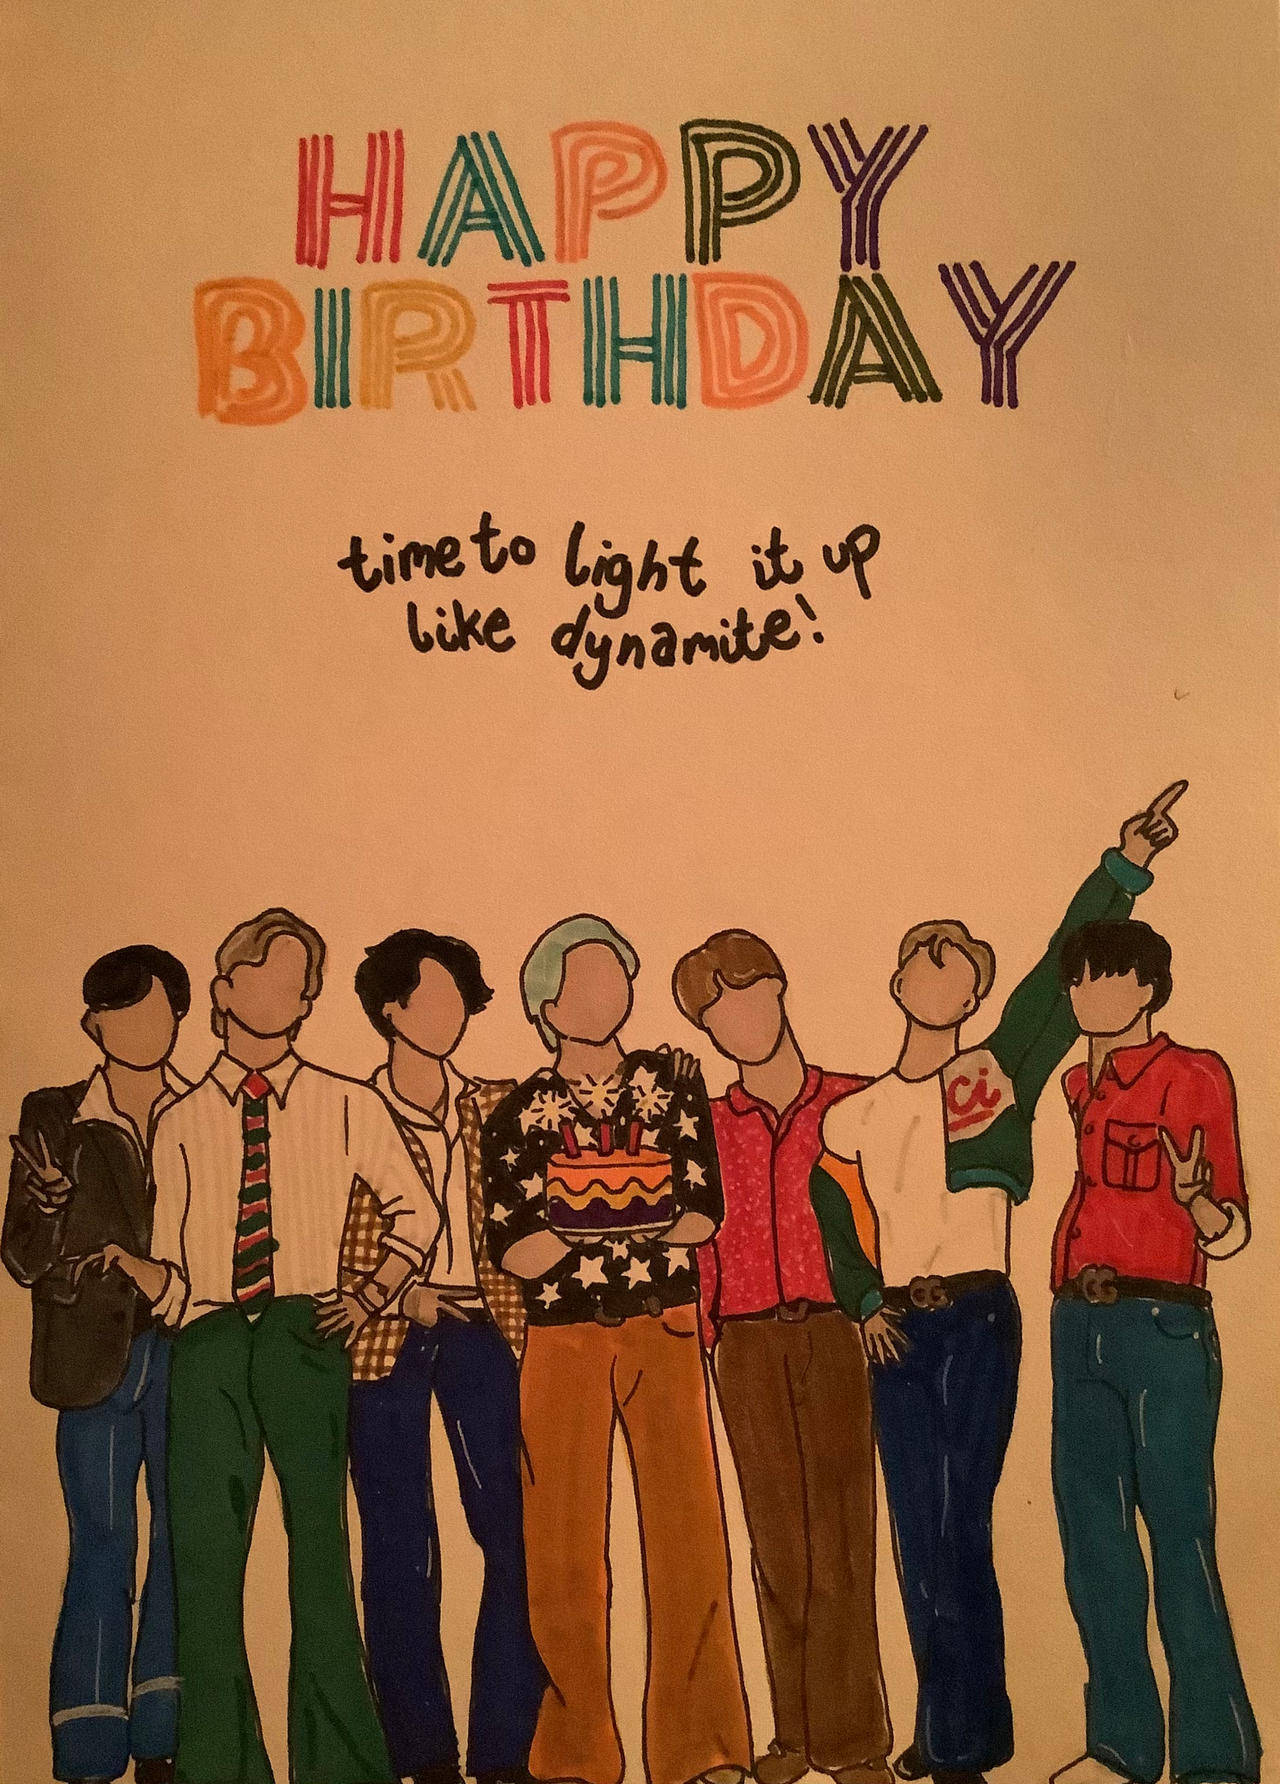 HAPPY
BIRTHDAY
time to light it up
like dynamite!
ci